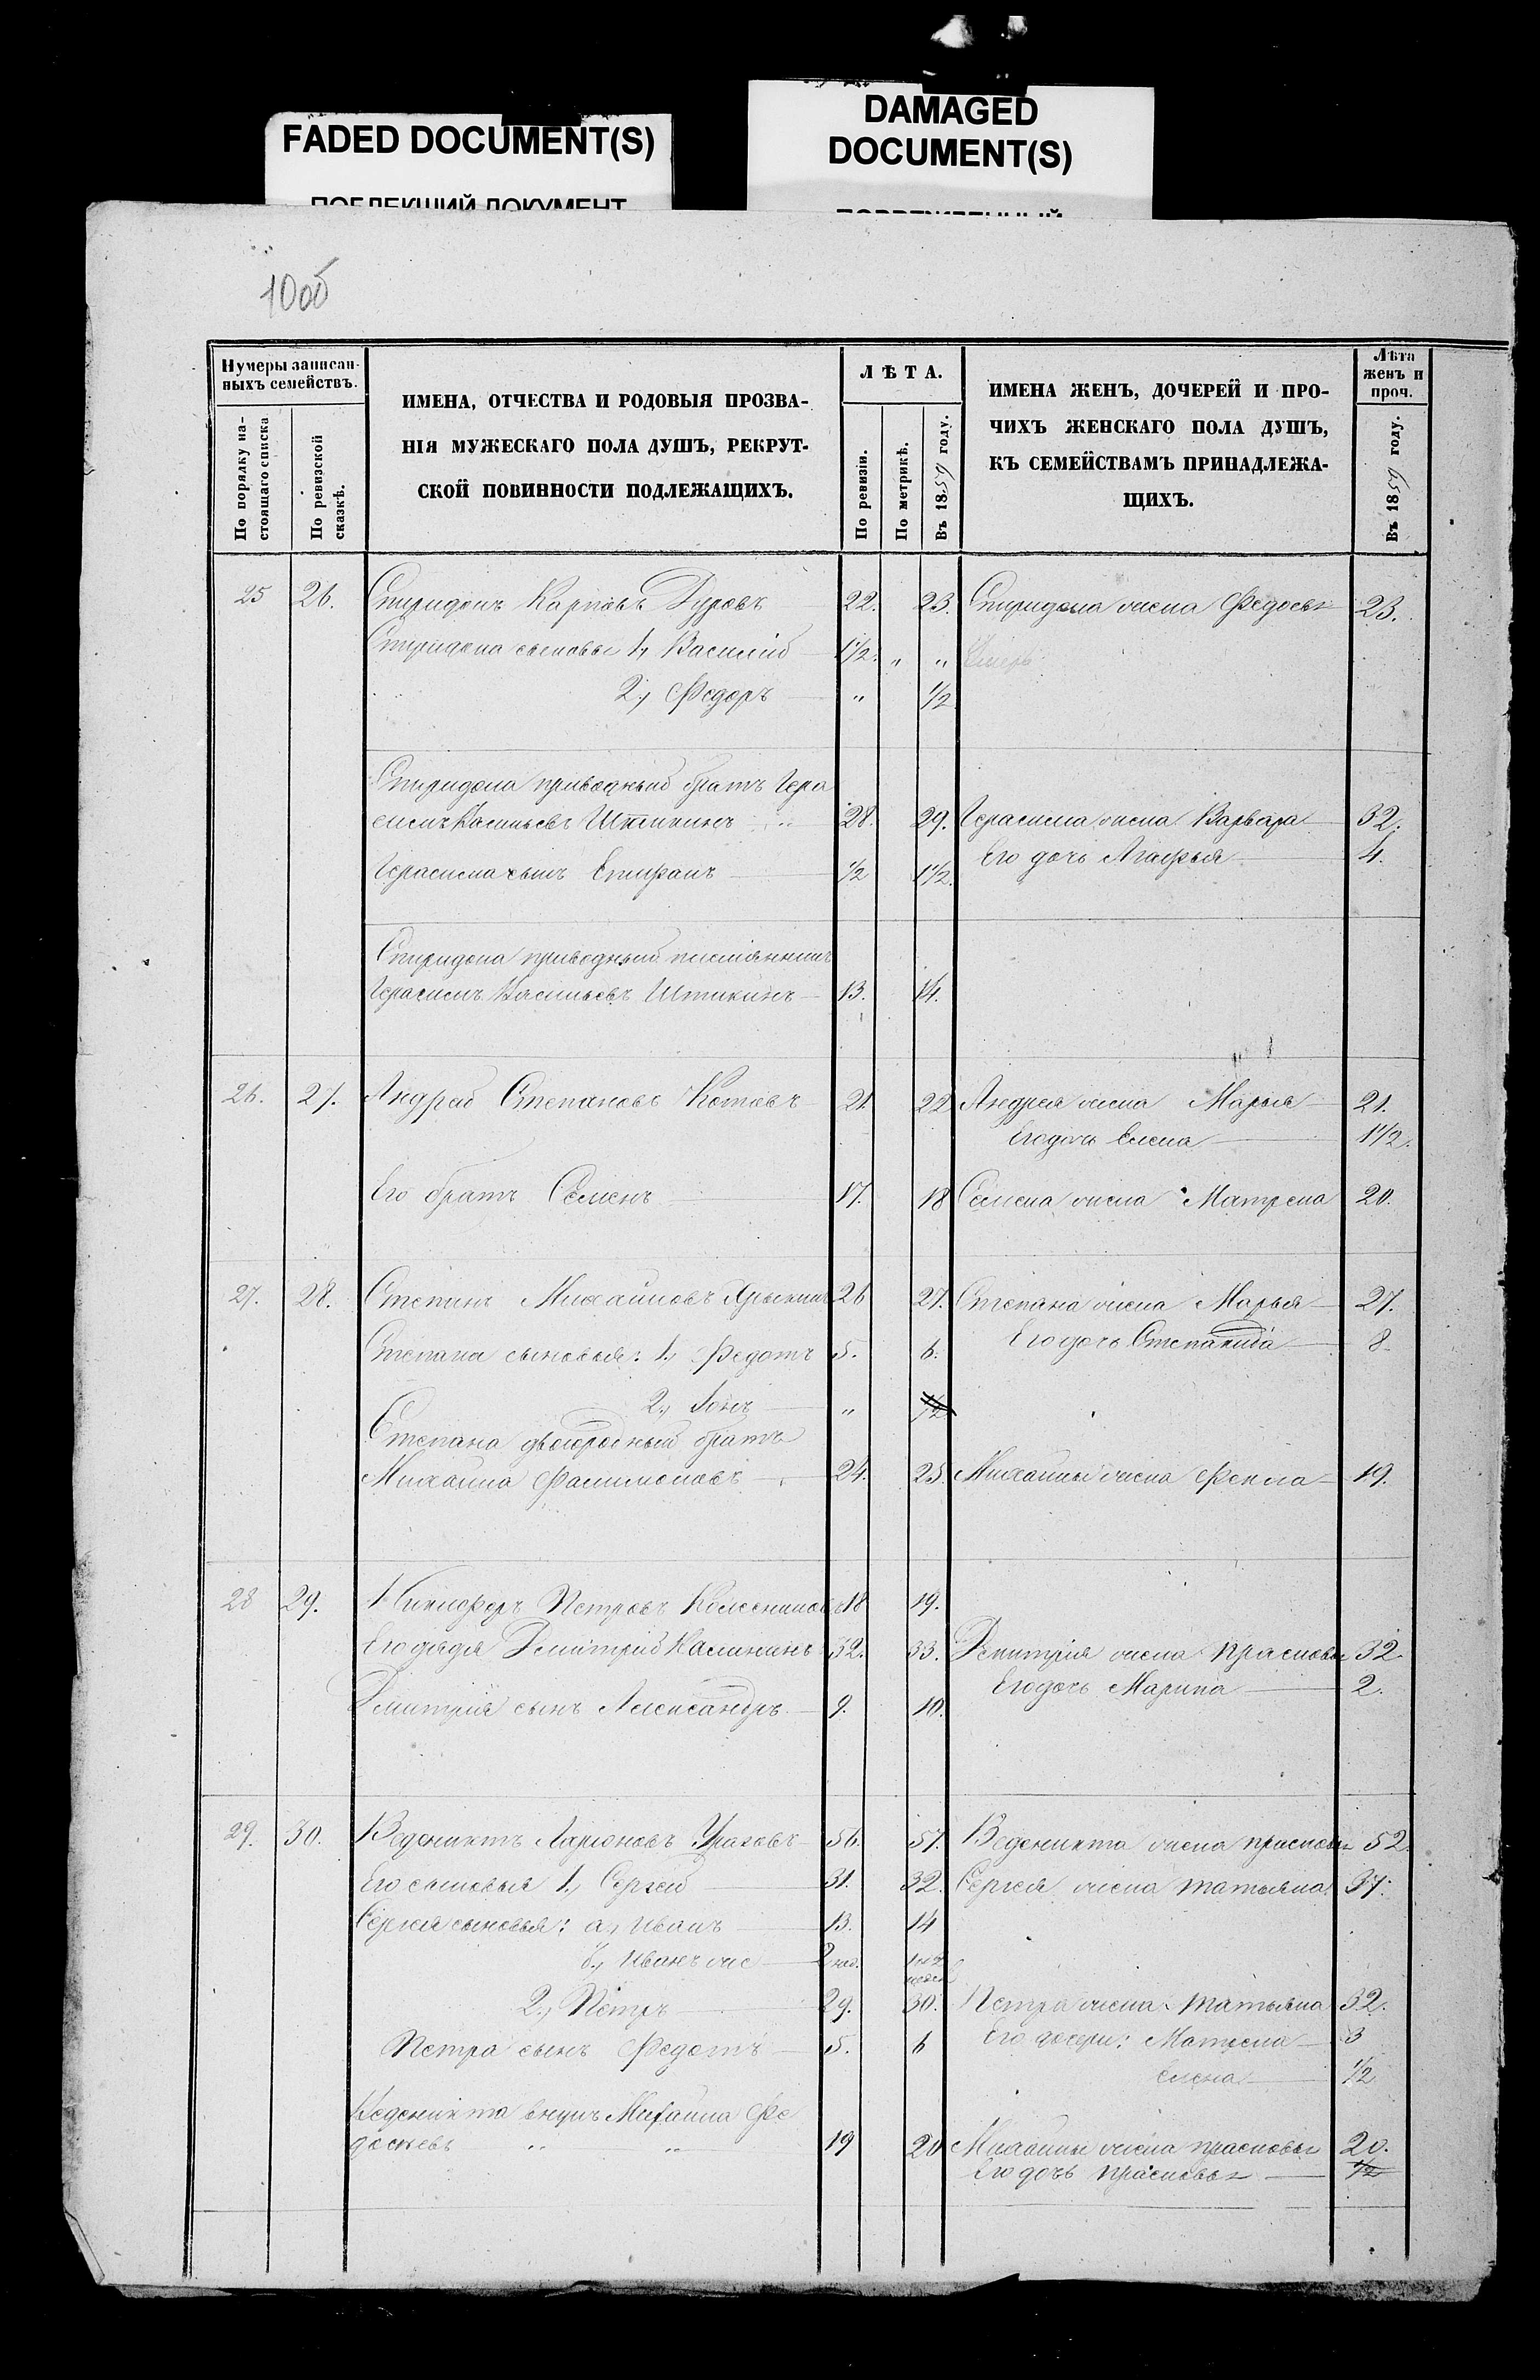 FADED DOCUMENT(S)
DAMAGED
DOCUMENT(S)
100б
Нумеры записан-
ныхъ семействъ.
По порядку на-
стоящаго списка
По ревизской
сказкѣ.
ИМЕНА, ОТЧЕСТВА И РОДОВЫЯ ПРОЗВА-
НІЯ МУЖЕСКАГО ПОЛА ДУШЪ, РЕКРУТ-
СКОЙ ПОВИННОСТИ ПОДЛЕЖАЩИХЪ.
ЛѢТА.
По ревизіи.
По метрикѣ.
Въ 1859 году.
ИМЕНА ЖЕНЪ, ДОЧЕРЕЙ И ПРО-
ЧИХЪ ЖЕНСКАГО ПОЛА ДУШЪ,
КЪ СЕМЕЙСТВАМЪ ПРИНАДЛЕЖА-
ЩИХЪ.
Лѣта
женъ и
проч.
Въ 1859 году.
25 26. Спиридонъ Карповъ 22. 23. Спиридона жена Федосья 23.
Спиридона сыновья 1, Василій 1½. " "
2, Федоръ " ½
Спиридона приводный братъ Гера
симъ Васильевъ Штыкинъ 28. 29. Герасима жена Варвара 32.
Его дочь Агафья 4.
Герасима сынъ Епифанъ ½ 1½.
Спиридона приводный племянникъ
Герасимъ Васильевъ Штыкинъ 13. 14.
26. 27. Андрей Степановъ Котовъ 21 22 Андрея жена Марья 21.
Его дочь Елена 1½.
Его братъ Семенъ 17. 18 Семена жена Матрена 20.
27. 28. Степанъ Михайловъ 26 27. Степана жена Марья 27.
Степана сыновья: 1, Федотъ 5. 6. Его дочь Степанида 8.
2, "
Степана двоюродный братъ
Михайла Филимоновъ 24. 25. Михайлы жена Фекла 19.
28 29. Никифоръ Петровъ 18 19.
Его дядя Дмитрій Калининъ 32. 33. Дмитрія жена Прасковья 32
Его дочь Марина 2.
Дмитрія сынъ Александръ 9. 10.
29. 30. Веденихтъ Ларіоновъ 56. 57. Веденихта жена Прасковья 52.
Его сыновья 1, Сергей 31. 32. Сергея жена Татьяна 37.
Сергея сыновья: а, Иванъ 13. 14
б, Иванъ же 2 нед.
2, Петръ 29. 30. Петра жена Татьяна 32.
Петра сынъ Федотъ 5. 6 Его дочери: Матрена 3
Елена ½
Веденихта внукъ Михайла Фе
досѣевъ " " 19 20 Михайлы жена Прасковья 20.
Его дочь Прасковья ½